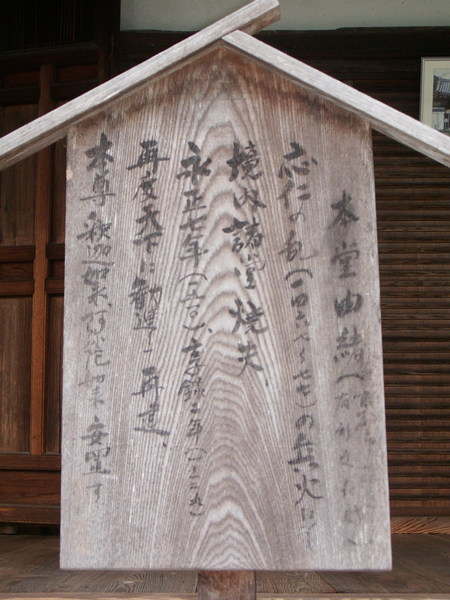 本堂由緒（
応仁の乱（一四六七〜七七）の兵火にて
境内諸堂焼失、
永正七年（一五一〇）、享録二年（一五二九）
再度天下に勧進し再建、
本尊 釈迦如来 阿弥陀如来 安置す